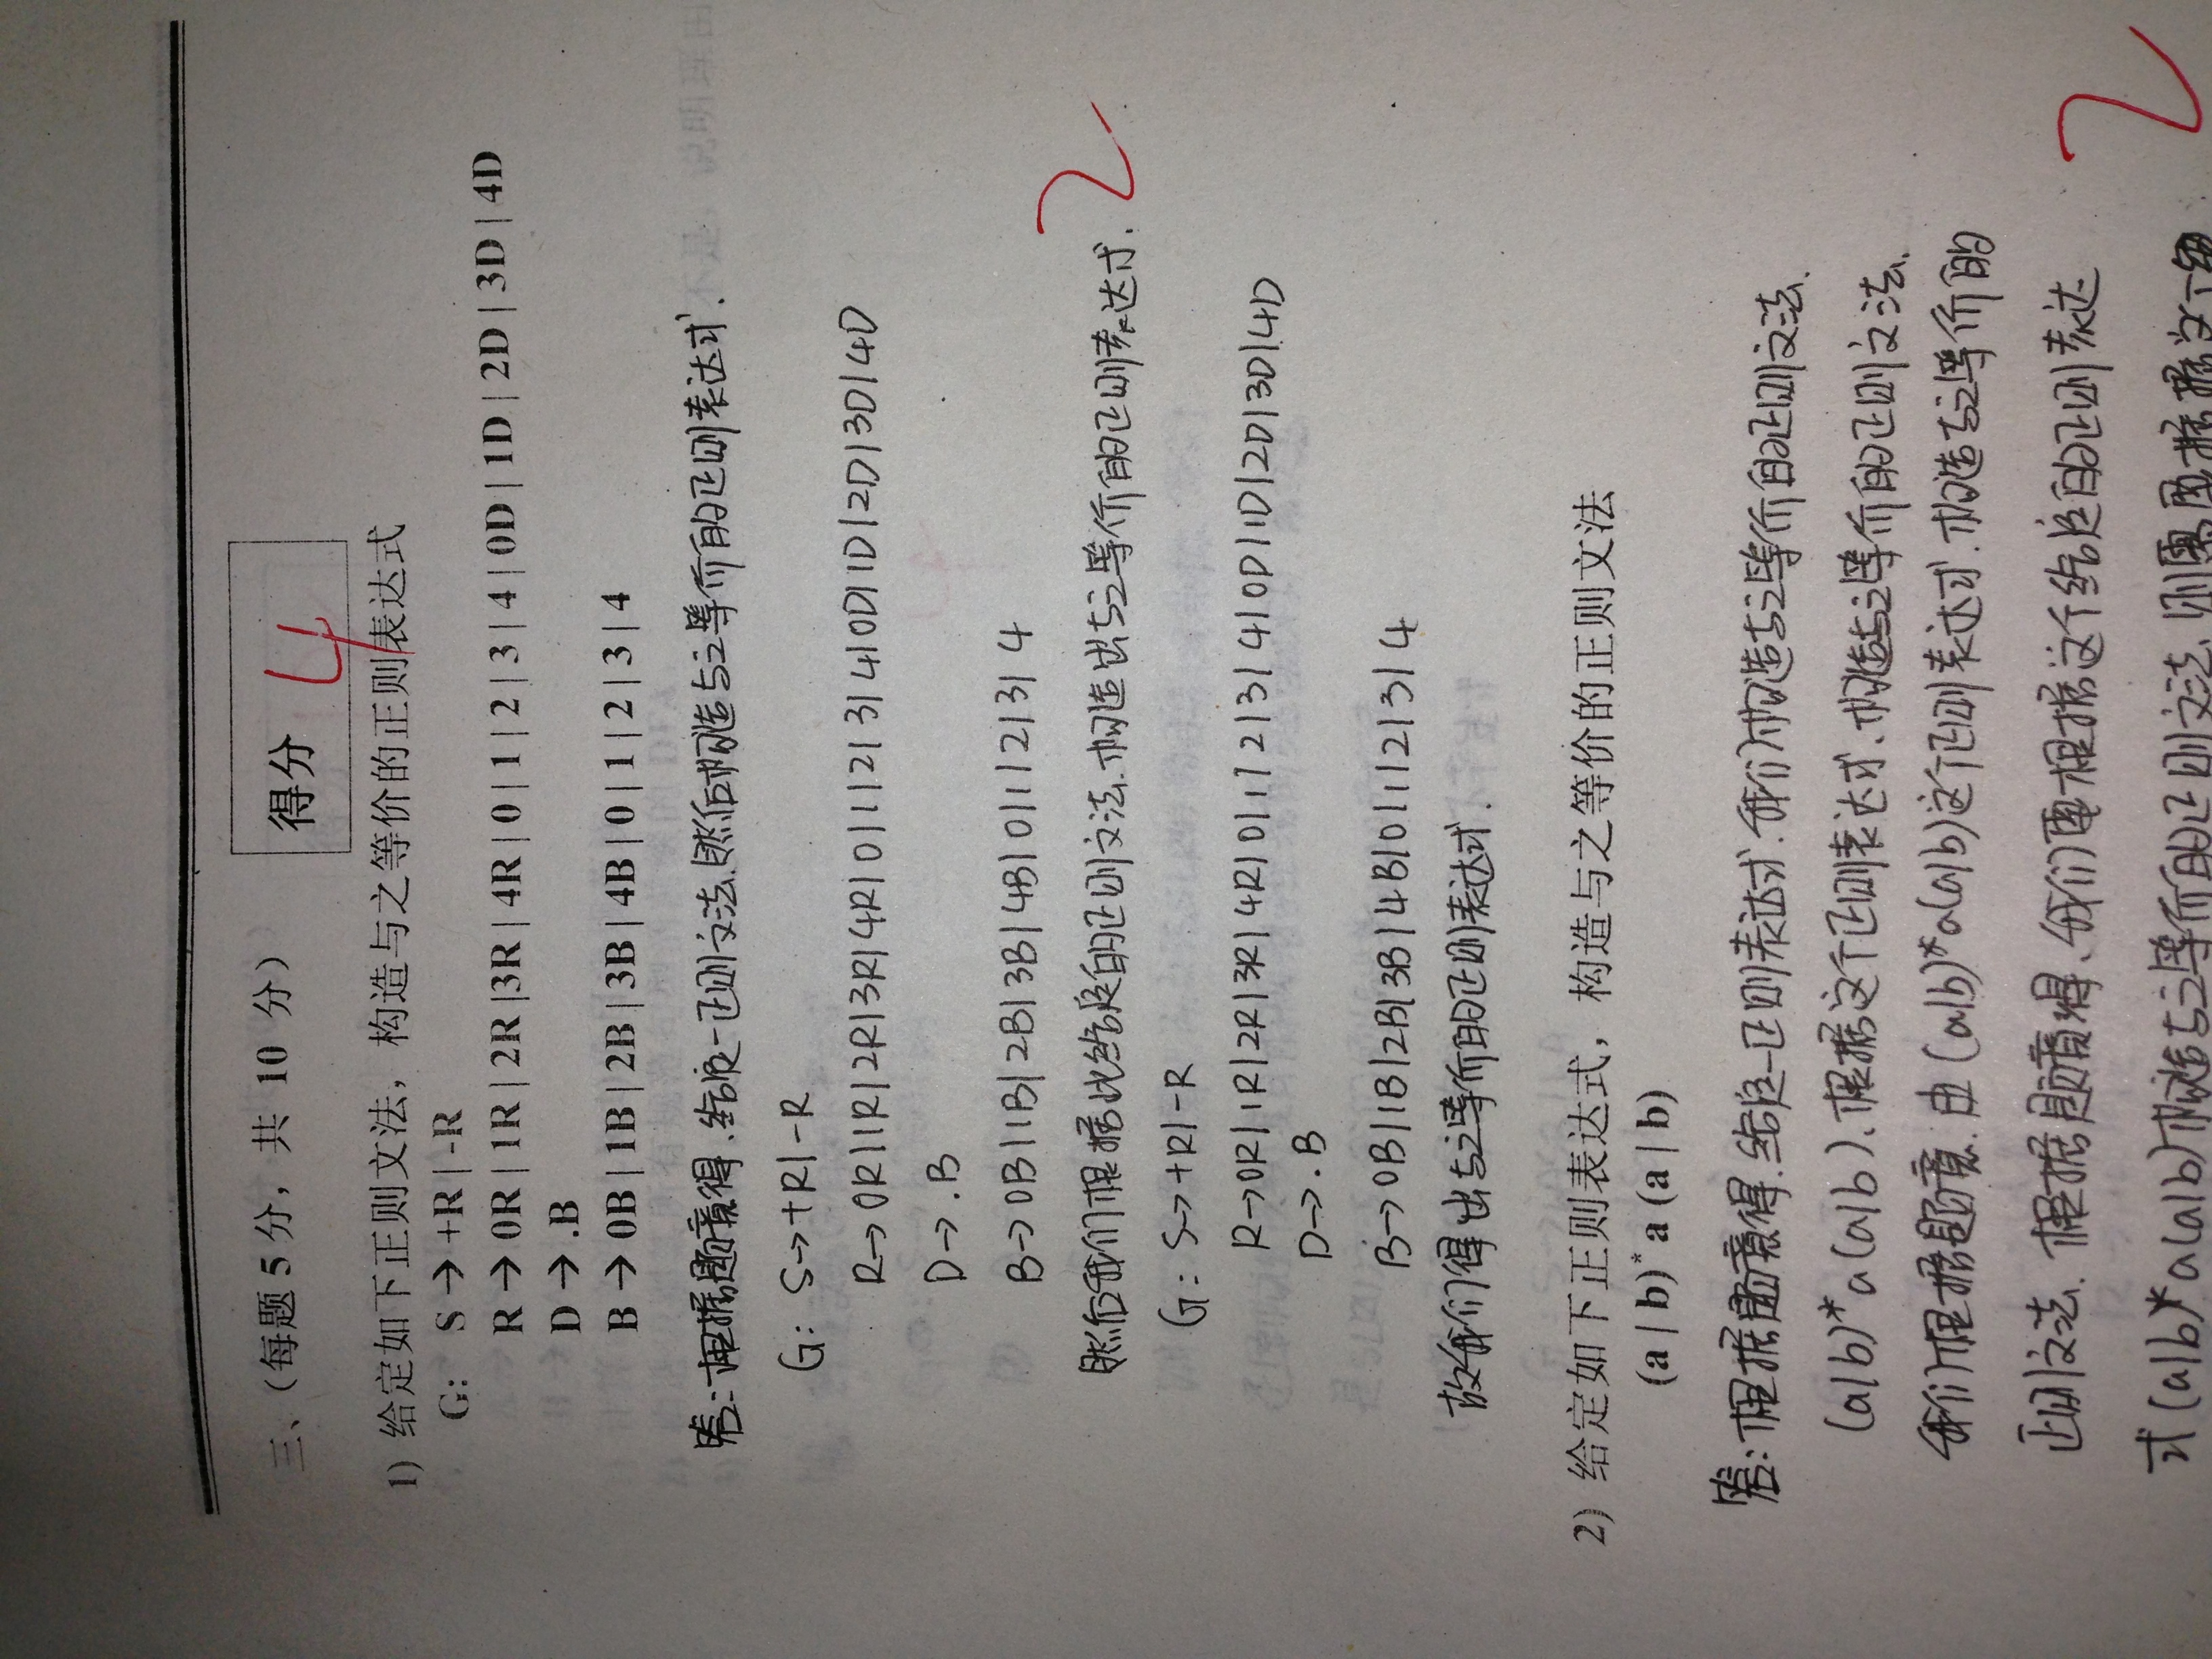 三、（每题 5 分，共 10 分）
得分 4
1) 给定如下正则文法，构造与之等价的正则表达式
G: S → +R | -R
R → 0R | 1R | 2R |3R | 4R | 0 | 1 | 2 | 3 | 4 | 0D | 1D | 2D | 3D | 4D
D → .B
B → 0B | 1B | 2B | 3B | 4B | 0 | 1 | 2 | 3 | 4
答:根据题意得.给定一正则文法.然后构造与之等价的正则表达式.
G: S→+R|-R
R→0R|1R|2R|3R|4R|0|1|2|3|4|0D|1D|2D|3D|4D
D→.B
B→0B|1B|2B|3B|4B|0|1|2|3|4
然后我们根据此给定的正则文法.构造出与之等价的正则表达式.
2
G: S→+R|-R
R→0R|1R|2R|3R|4R|0|1|2|3|4|0D|1D|2D|3D|4D
D→.B
B→0B|1B|2B|3B|4B|0|1|2|3|4
故我们得出与之等价的正则表达式.
2) 给定如下正则表达式，构造与之等价的正则文法
(a | b)* a (a | b)
答:根据题意得.给定一正则表达式.我们构造与之等价的正则文法.
(a|b)*a(a|b).根据这个正则表达式.构造与之等价的正则文法.
我们根据题意.由(a|b)*a(a|b)这个正则表达式.构造与之等价的
正则文法.根据题意得.我们要根据这个给定的正则表达
式(a|b)*a(a|b)构造与之等价的正则文法.则需要根据这个给
2